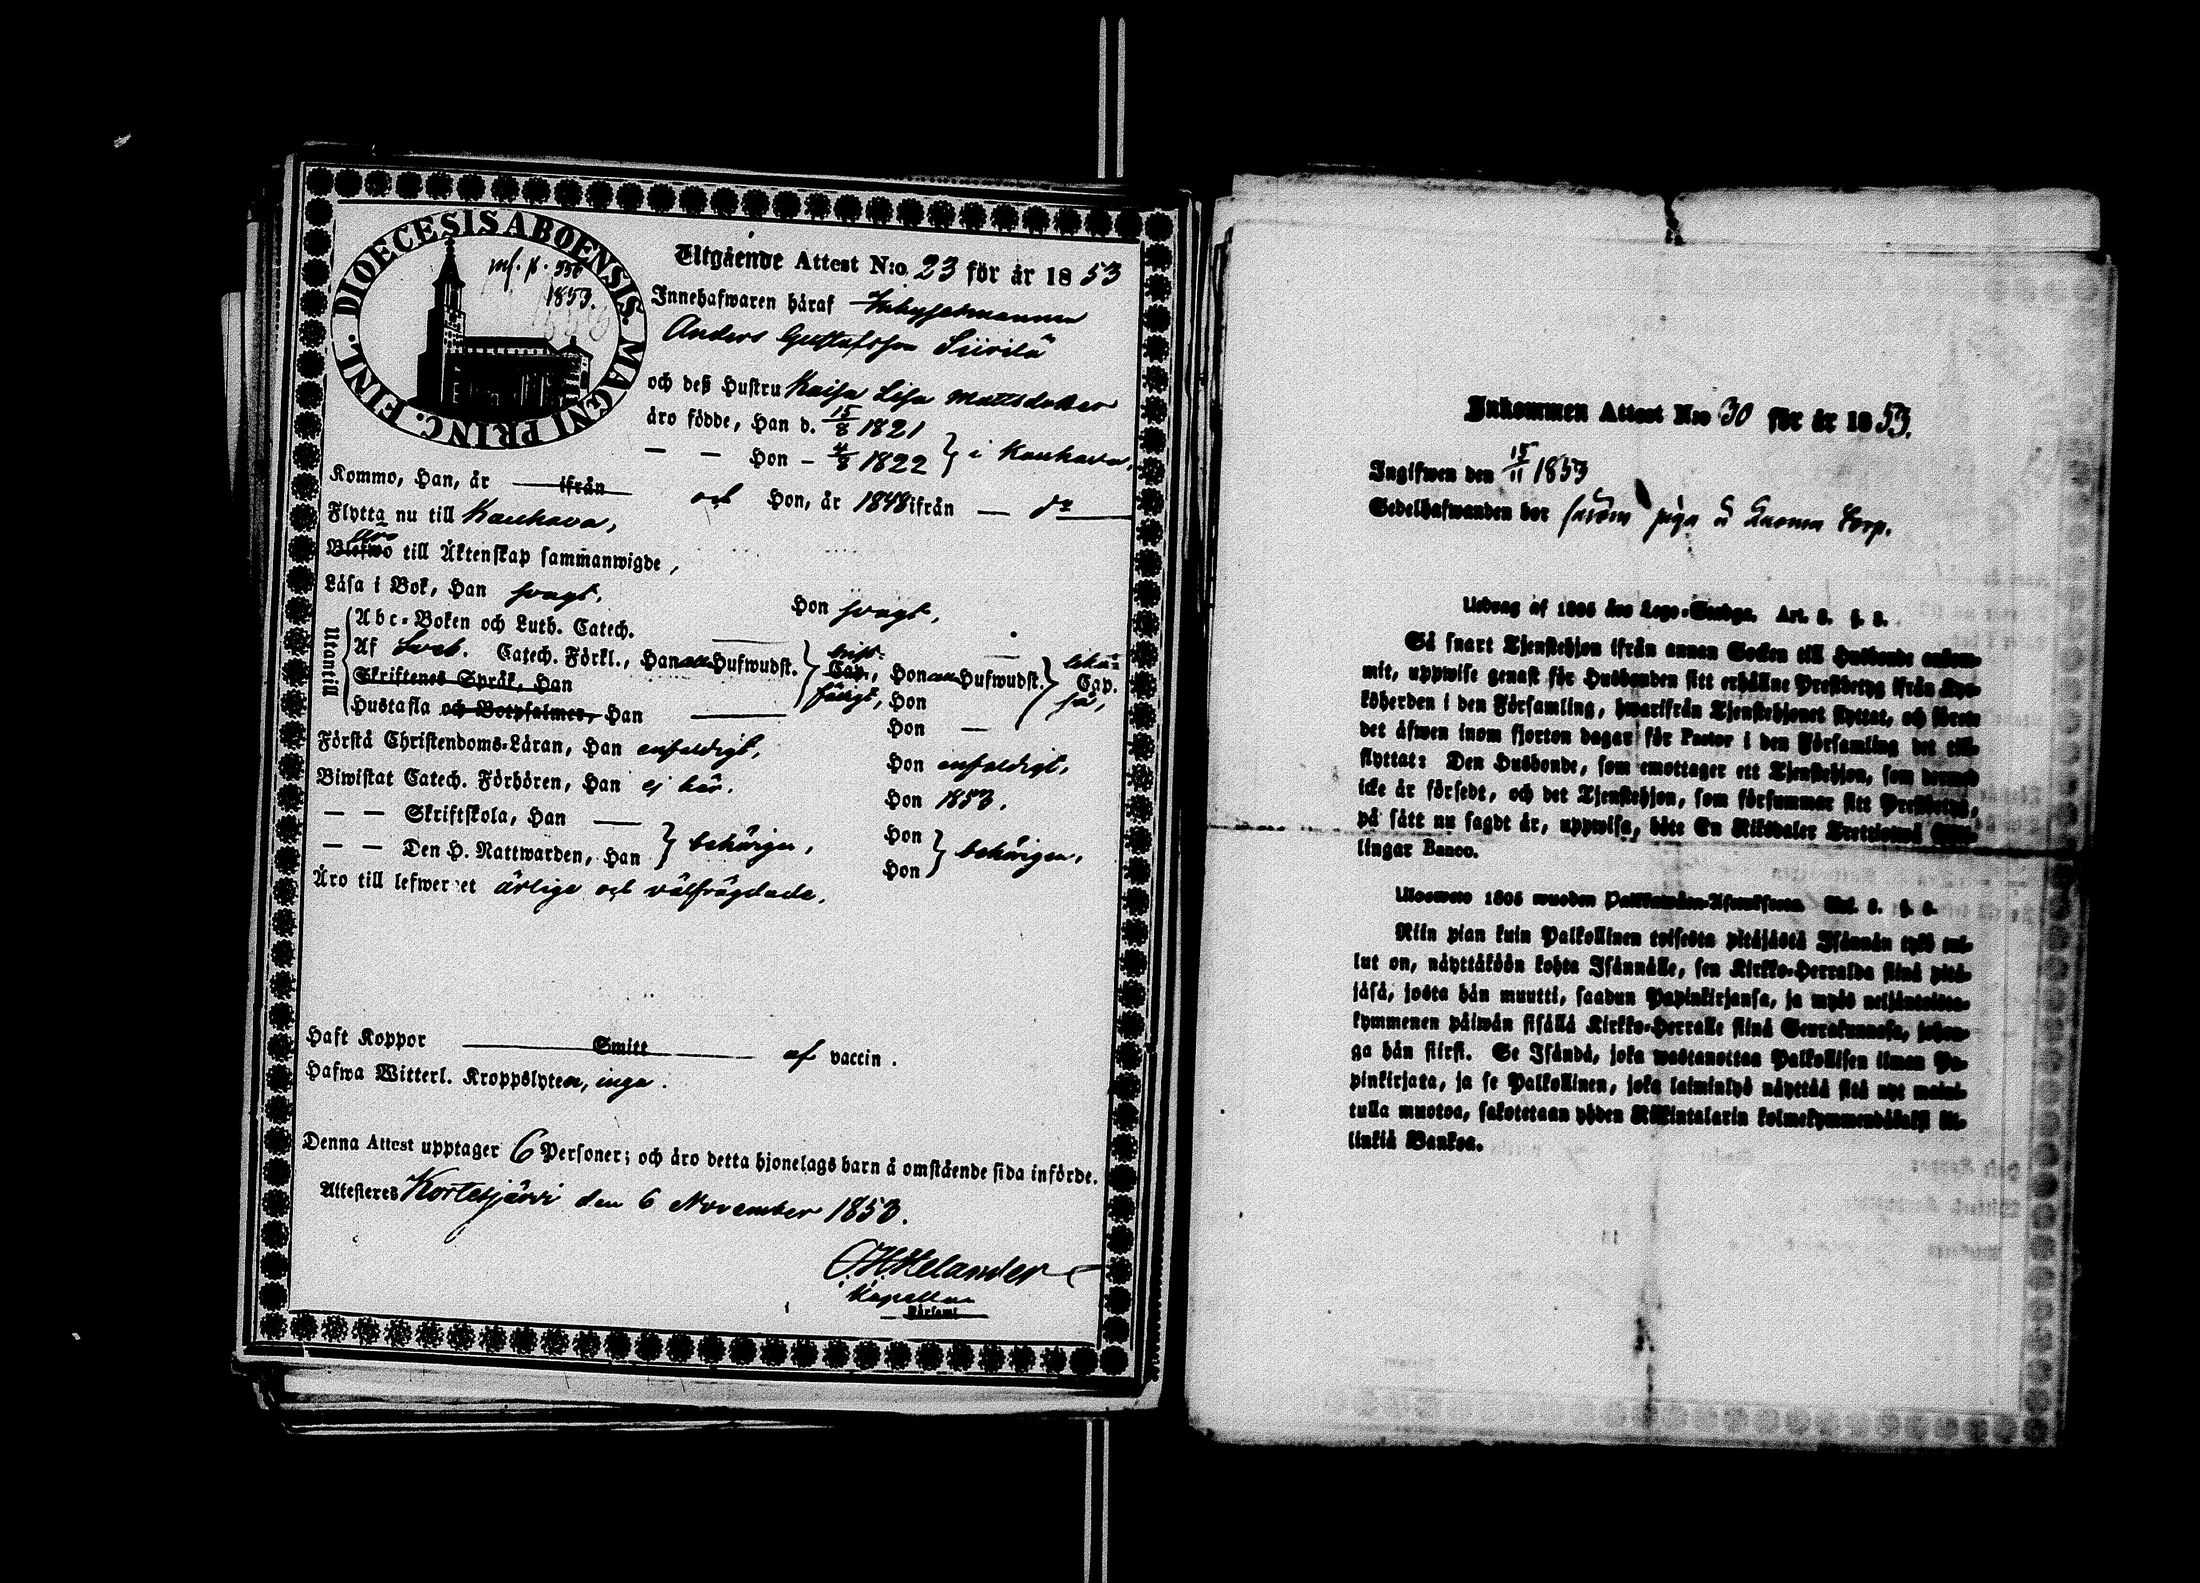 DIOECESIS ABOENSIS. MAGNI PRINC. FINL.
inf. p. 350
1853.
Utgående Attest N:o 23 för år 1853
Innehafwaren häraf Inhysesmannen
Anders Gustafsson Siirilä
och deß Hustru Kaisa Lisa Mattsdotter
äro födde, Han d. 15/8 1821
— — Hon – 4/8 1822 } i Kauhava.
Kommo, Han, år — ifrån
och Hon, år 1848 ifrån — do
Flytta nu till Kauhava,
Blefwo äro till Äktenskap sammanwigde,
Läsa i Bok, Han svagt. Hon svagt.
Utantill
Abc-Boken och Luth. Catech.
Af Sveb. Catech. Förkl., Han alla Hufwudst. Cap., Hon alla Hufwudst. Cap.
Skriftenes Språk, Han Hon
Hustafla och Botpsalmer, Han — Hon —
Förstå Christendoms-Läran, Han enfaldigt, Hon enfaldigt,
Biwistat Catech. Förhören, Han ej här. Hon 1853.
— — Skriftskola, Han — Hon
— — Den H. Nattwarden, Han } behörigen, Hon } behörigen,
Äro till lefwernet ärlige och välfrägdade.
Haft Koppor — Smitt — af vaccin.
Hafwa Witterl. Kroppslyten, inga.
Denna Attest upptager 6 Personer; och äro detta hjonelags barn å omstående sida införde.
Attesteres Kortesjärvi den 6 November 1853.
Helander
Kapellan
Församl.
Inkommen Attest N:o 30 för år 1853.
Ingifwen den 15/11 1853
Sedelhafwanden bor såsom på Luoma Torp.
Utdrag af 1805 års Lego-Stadga. Art. 3. §. 3.
Så snart Tjenstehjon ifrån annan Socken till Husbonde ankom-
mit, uppwise genast för Husbonden sitt erhållne Prestbetyg ifrån Kyr-
koherden i den Församling, hwarifrån Tjenstehjonet flyttat, och förete
det äfwen inom fjorton dagar för Pastor i den Församling det till-
flyttat: Den Husbonde, som emottager ett Tjenstehjon, som dermed
icke är försedt, och det Tjenstehjon, som försummar sitt Prestbetyg,
på sätt nu sagdt är, uppwisa, böte En Riksdaler Trettiotwå Skil-
lingar Banco.
Ulosweto 1805 wuoden Palkkawäen-Asetuksesta
Niin pian kuin Palkollinen toisesta pitäjästä Isännän tykö tul-
lut on, näyttäköön kohta Isännälle, sen Kirkko-Herralda siinä pitä-
jäsä, josta hän muutti, saadun Papinkirjansa, ja myös neljäntoista-
kymmenen päiwän sisällä Kirkko-Herralle siinä Seurakunnasa, johon-
ga hän siirsi. Se Isändä, joka wastanottaa Palkollisen ilman Pa-
pinkirjata, ja se Palkollinen, joka laiminlyö näyttää sitä nyt maini-
tulla muotoa, sakotetaan yhden Riikintalarin kolmekymmendäkaksi kil-
linkiä Bankoa.